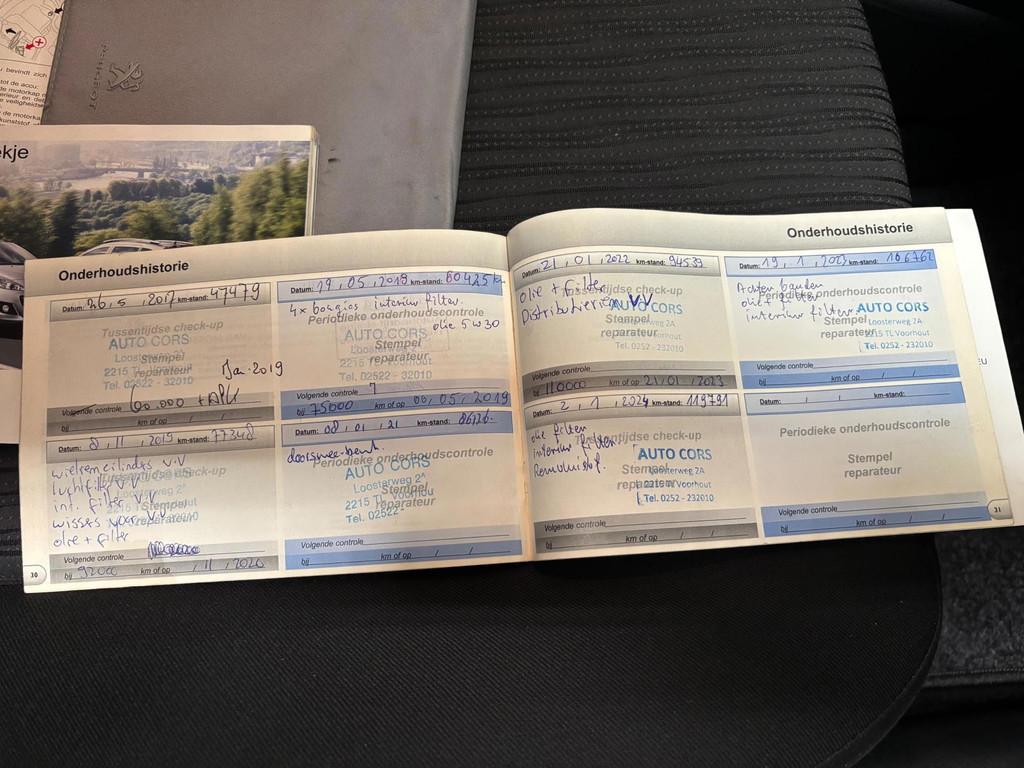 PEUGEOT
u bevindt zich
tot de accu:
de motorkap
kunststof
ekje
Onderhoudshistorie
Datum: 26, 5, 2017 km-stand: 47479
Tussentijdse check-up
AUTO CORS
Stempel
reparateur
2215
Tel. 02522 - 32010
Jan. 2019
Volgende controle
60.000
bij km of op
Datum: 19, 05, 2019 km-stand: 60425 km
4x bougies / interieur filter.
Periodieke onderhoudscontrole
olie 5w30
AUTO CORS
Stempel
reparateur
2215 TL Voorhout
Tel. 02522 - 32010
Volgende controle
bij 75000 km of op 06, 05, 2019
Datum: 8, 11, 2019 km-stand: 77348
wielremcilindes v.v
Tussentijdse check-up
luchtfilter v.v
int. filter v.v
Stempel
reparateur
wisses voor v.v
olie + filter
Volgende controle
bij 92000 km of op 11, 2020
Datum: 08, 01, 21 km-stand:
Periodieke onderhoudscontrole
AUTO CORS
Loosterweg 2A
Stempel
reparateur
2215 TL Voorhout
Tel. 02522-
Volgende controle
bij km of op / /
30
Onderhoudshistorie
Datum: 21, 01, 2022 km-stand: 94539
olie + filter
Tussentijdse check-up
Distributieriem V.V
AUTO CORS
Stempel
reparateur
Loosterweg 2A
2215 TL Voorhout
Tel. 0252 - 232010
Volgende controle
bij 110000 km of op 21/01/2023
Datum: 19, 1, 2023 km-stand: 106762
Achter banden
Periodieke onderhoudscontrole
olie + filter
interieur filter
AUTO CORS
Stempel
reparateur
Loosterweg 2A
2215 TL Voorhout
Tel. 0252 - 232010
Volgende controle
bij km of op / /
Datum: 2, 1, 2024 km-stand: 119791
olie filter
Tussentijdse check-up
Interieur filter
Remvloeistof.
AUTO CORS
Stempel
reparateur
Loosterweg 2A
2215 TL Voorhout
Tel. 0252 - 232010
Volgende controle
bij km of op / /
Datum: / / km-stand:
Periodieke onderhoudscontrole
Stempel
reparateur
Volgende controle
bij km of op / /
31